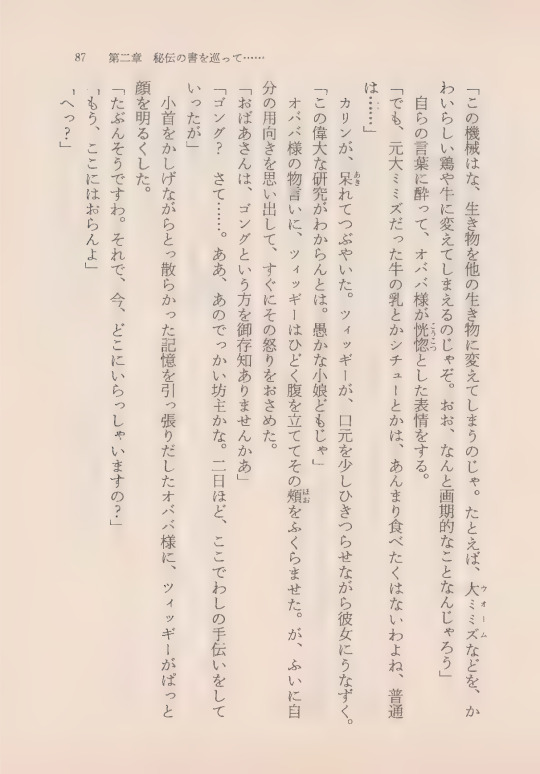 87　第二章　秘伝の書を巡って……
「この機械はな、生き物を他の生き物に変えてしまうのじゃ。たとえば、大ミミズなどを、か
ウォーム
わいらしい鶏や牛に変えてしまえるのじゃぞ。おお、なんと画期的なことなんじゃろう」
自らの言葉に酔って、オババ様が恍惚とした表情をする。
こうこつ
「でも、元大ミミズだった牛の乳とかシチューとかは、あんまり食べたくはないわよね、普通
は……」
カリンが、呆れてつぶやいた。ツィッギーが、口元を少しひきつらせながら彼女にうなずく。
あき
「この偉大な研究がわからんとは。愚かな小娘どもじゃ」
オババ様の物言いに、ツィッギーはひどく腹を立ててその頬をふくらませた。が、ふいに自
ほお
分の用向きを思い出して、すぐにその怒りをおさめた。
「おばあさんは、ゴングという方を御存知ありませんかあ」
「ゴング？　さて……。ああ、あのでっかい坊主かな。二日ほど、ここでわしの手伝いをして
いったが」
小首をかしげながらとっ散らかった記憶を引っ張りだしたオババ様に、ツィッギーがぱっと
顔を明るくした。
「たぶんそうですわ。それで、今、どこにいらっしゃいますの？」
「もう、ここにはおらんよ」
「へっ？」